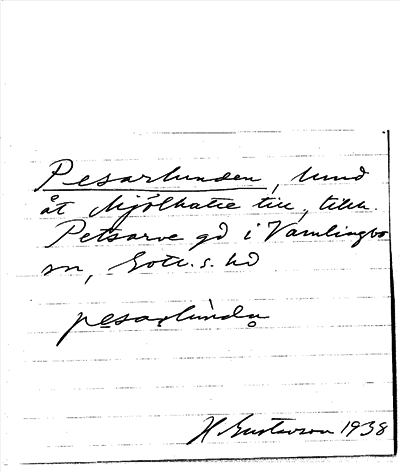 Pesarlunden, lund
åt Mjölhatte till, tillh.
Petsarve gd i Vamlingbo
sn, Gotl. s. hd
pesarlunda
H Gustavson 1938